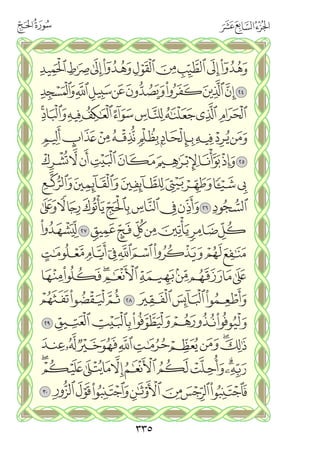 الجزء السابع عشر
سورة الحج
وَهُدُوٓا۟ إِلَى ٱلطَّيِّبِ مِنَ ٱلْقَوْلِ وَهُدُوٓا۟ إِلَىٰ صِرَٰطِ ٱلْحَمِيدِ
٢٤ إِنَّ ٱلَّذِينَ كَفَرُوا۟ وَيَصُدُّونَ عَن سَبِيلِ ٱللَّهِ وَٱلْمَسْجِدِ
ٱلْحَرَامِ ٱلَّذِى جَعَلْنَٰهُ لِلنَّاسِ سَوَآءً ٱلْعَٰكِفُ فِيهِ وَٱلْبَادِ
وَمَن يُرِدْ فِيهِ بِإِلْحَادٍۭ بِظُلْمٍ نُّذِقْهُ مِنْ عَذَابٍ أَلِيمٍ
٢٥ وَإِذْ بَوَّأْنَا لِإِبْرَٰهِيمَ مَكَانَ ٱلْبَيْتِ أَن لَّا تُشْرِكْ
بِى شَيْـًٔا وَطَهِّرْ بَيْتِىَ لِلطَّآئِفِينَ وَٱلْقَآئِمِينَ وَٱلرُّكَّعِ
ٱلسُّجُودِ ٢٦ وَأَذِّن فِى ٱلنَّاسِ بِٱلْحَجِّ يَأْتُوكَ رِجَالًا وَعَلَىٰ
كُلِّ ضَامِرٍ يَأْتِينَ مِن كُلِّ فَجٍّ عَمِيقٍ ٢٧ لِّيَشْهَدُوا۟
مَنَٰفِعَ لَهُمْ وَيَذْكُرُوا۟ ٱسْمَ ٱللَّهِ فِىٓ أَيَّامٍ مَّعْلُومَٰتٍ
عَلَىٰ مَا رَزَقَهُم مِّنۢ بَهِيمَةِ ٱلْأَنْعَٰمِ ۖ فَكُلُوا۟ مِنْهَا
وَأَطْعِمُوا۟ ٱلْبَآئِسَ ٱلْفَقِيرَ ٢٨ ثُمَّ لْيَقْضُوا۟ تَفَثَهُمْ
وَلْيُوفُوا۟ نُذُورَهُمْ وَلْيَطَّوَّفُوا۟ بِٱلْبَيْتِ ٱلْعَتِيقِ ٢٩
ذَٰلِكَ وَمَن يُعَظِّمْ حُرُمَٰتِ ٱللَّهِ فَهُوَ خَيْرٌ لَّهُۥ عِندَ
رَبِّهِۦ ۗ وَأُحِلَّتْ لَكُمُ ٱلْأَنْعَٰمُ إِلَّا مَا يُتْلَىٰ عَلَيْكُمْ ۖ
فَٱجْتَنِبُوا۟ ٱلرِّجْسَ مِنَ ٱلْأَوْثَٰنِ وَٱجْتَنِبُوا۟ قَوْلَ ٱلزُّورِ ٣٠
٣٣٥